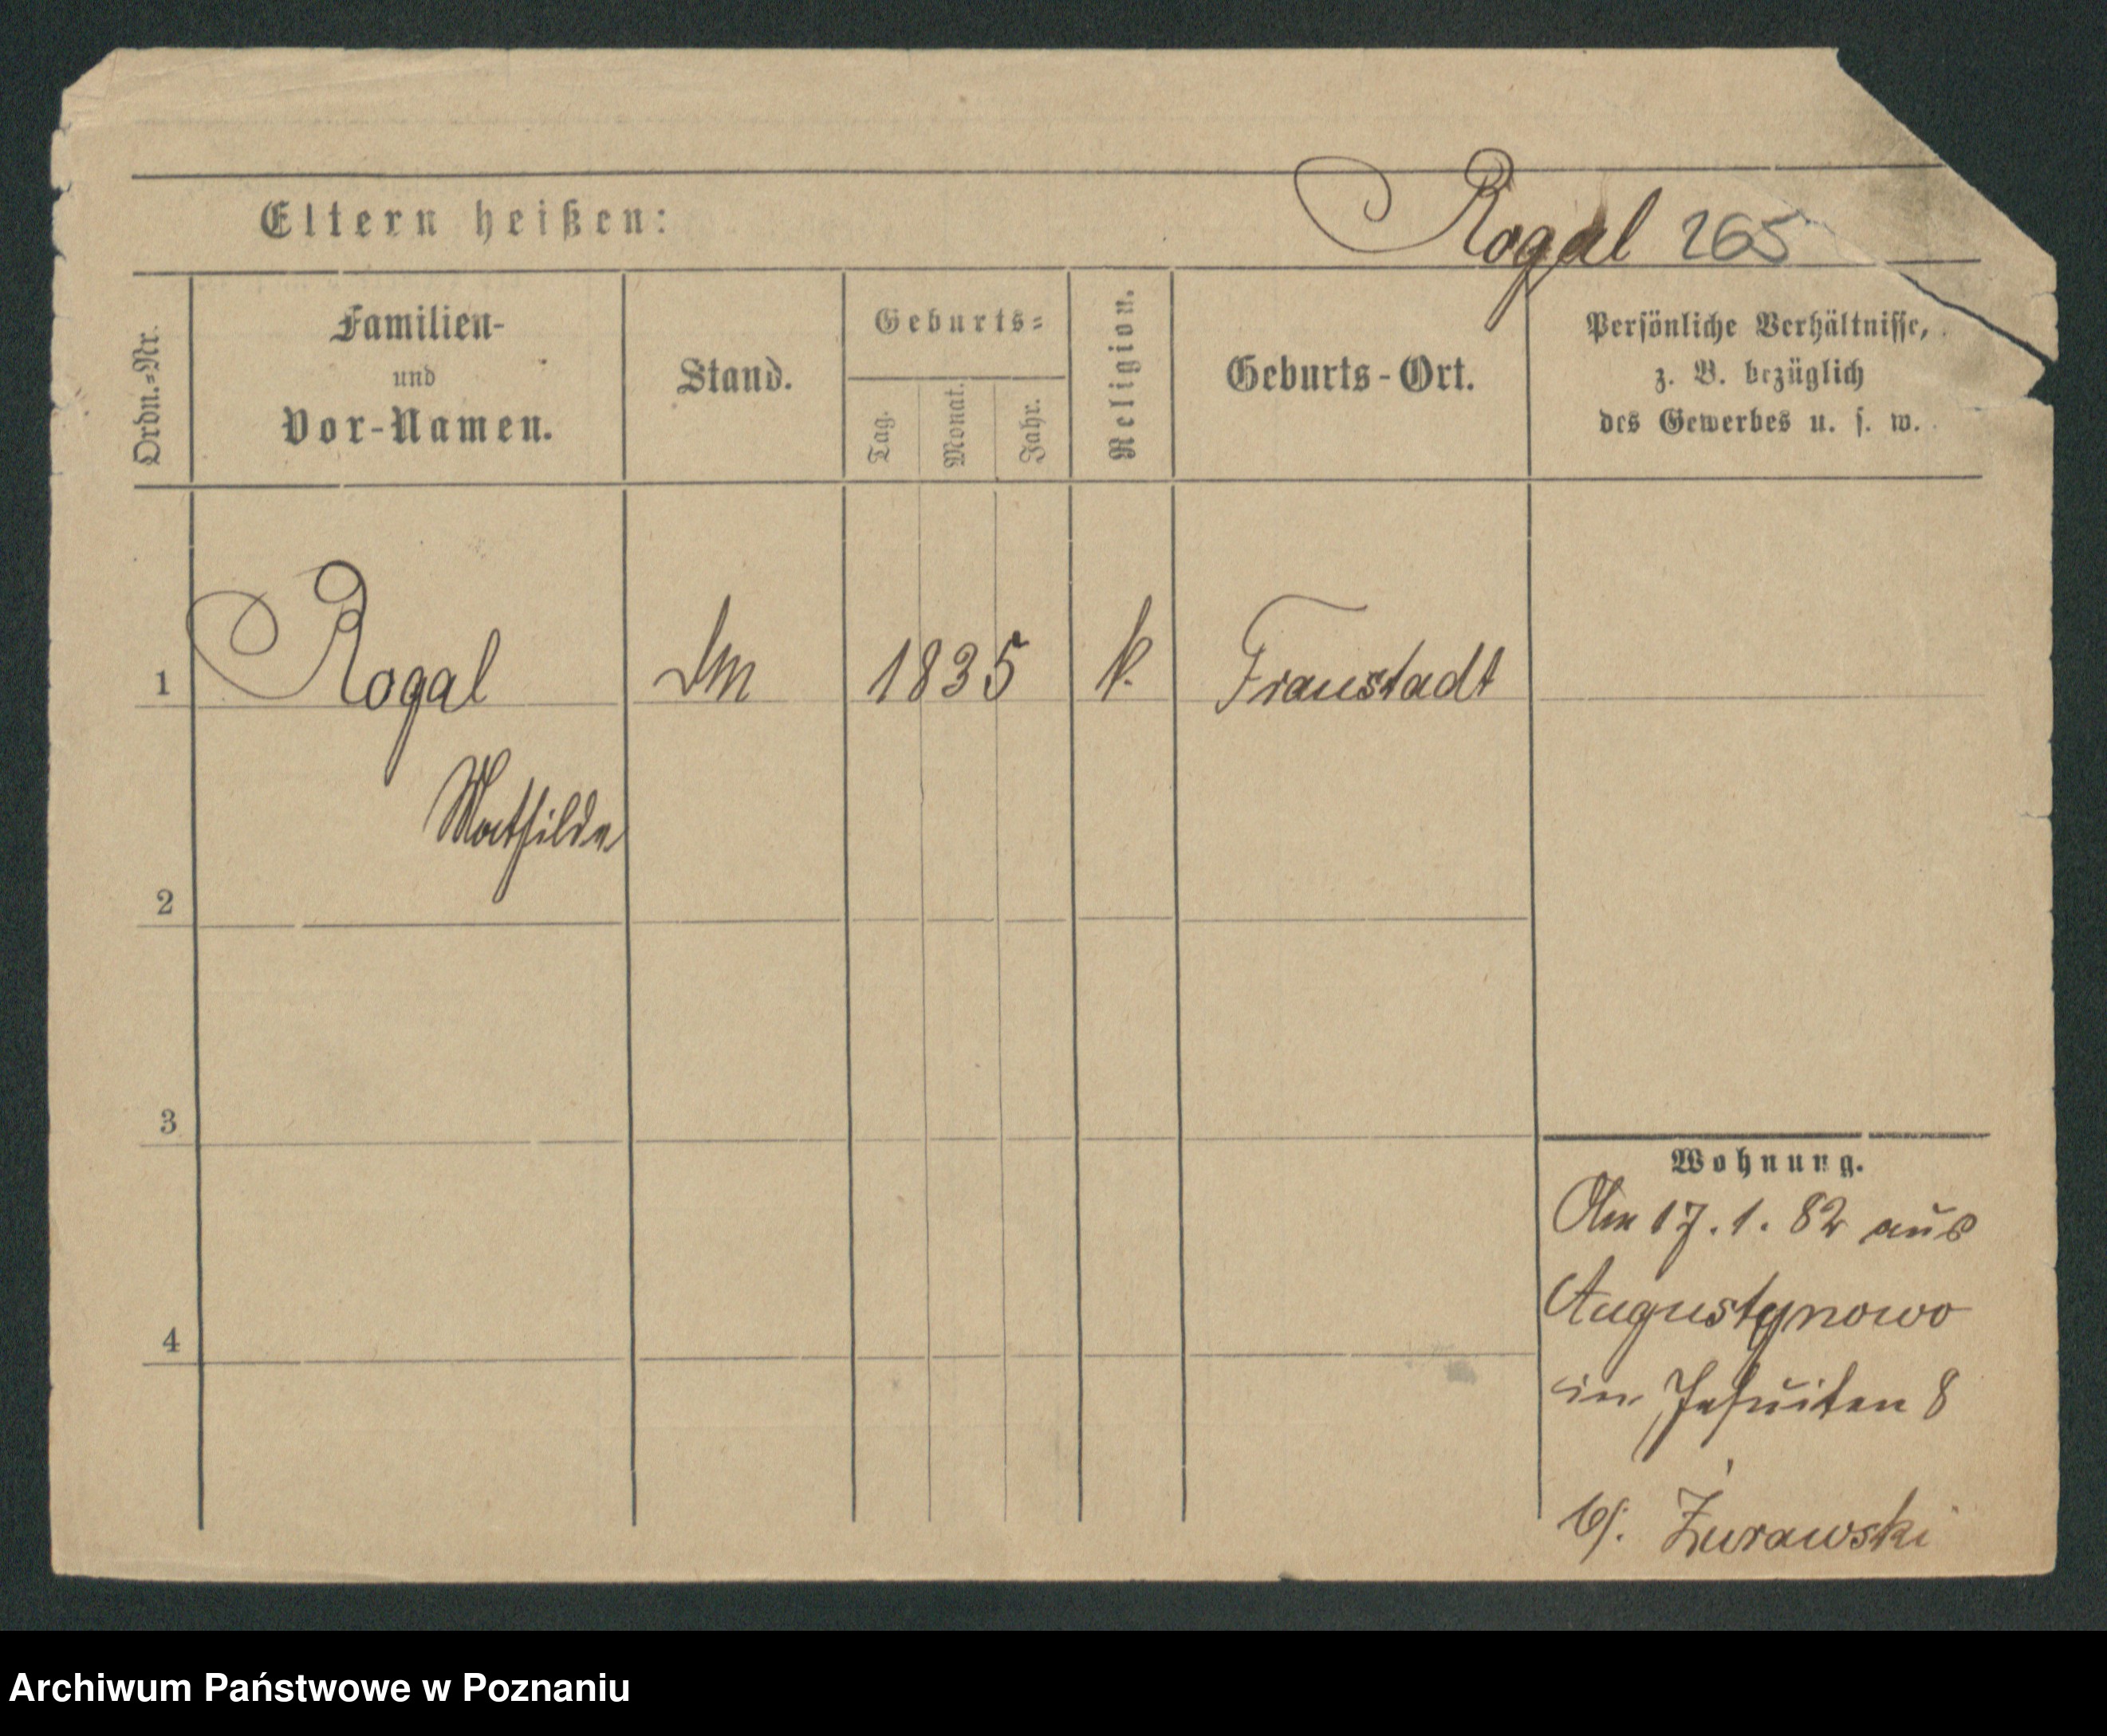 Eltern heißen:
Rogal 265
Ordn.=Nr.
Familien-
und
Vor-Namen.
Stand.
Geburts=
Tag.
Monat.
Jahr.
Religion.
Geburts-Ort.
Persönliche Verhältnisse,
z. B. bezüglich
des Gewerbes u. s. w.
1
Rogal
1835
k.
Fraustadt
Mathilde
2
3
4
Wohnung.
Am 17. 1. 82 aus
Augustynowo
in Jesuiten 8
b/. Żurawski
Archiwum Państwowe w Poznaniu